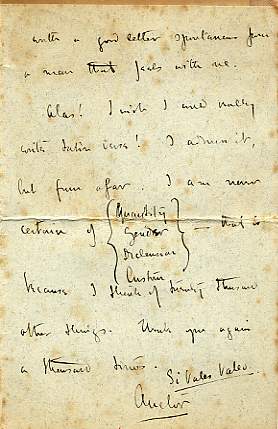 with a good letter spontaneous from
a man that feels with me.
Alas! I wish I could really
write Latin verse! I admire it,
but from afar. I am never
certain of { Quantity
Gender
Declension
Custom } — that is
because I think of twenty thousand
other things. Thank you again
a thousand times.
Si Vales Valeo.